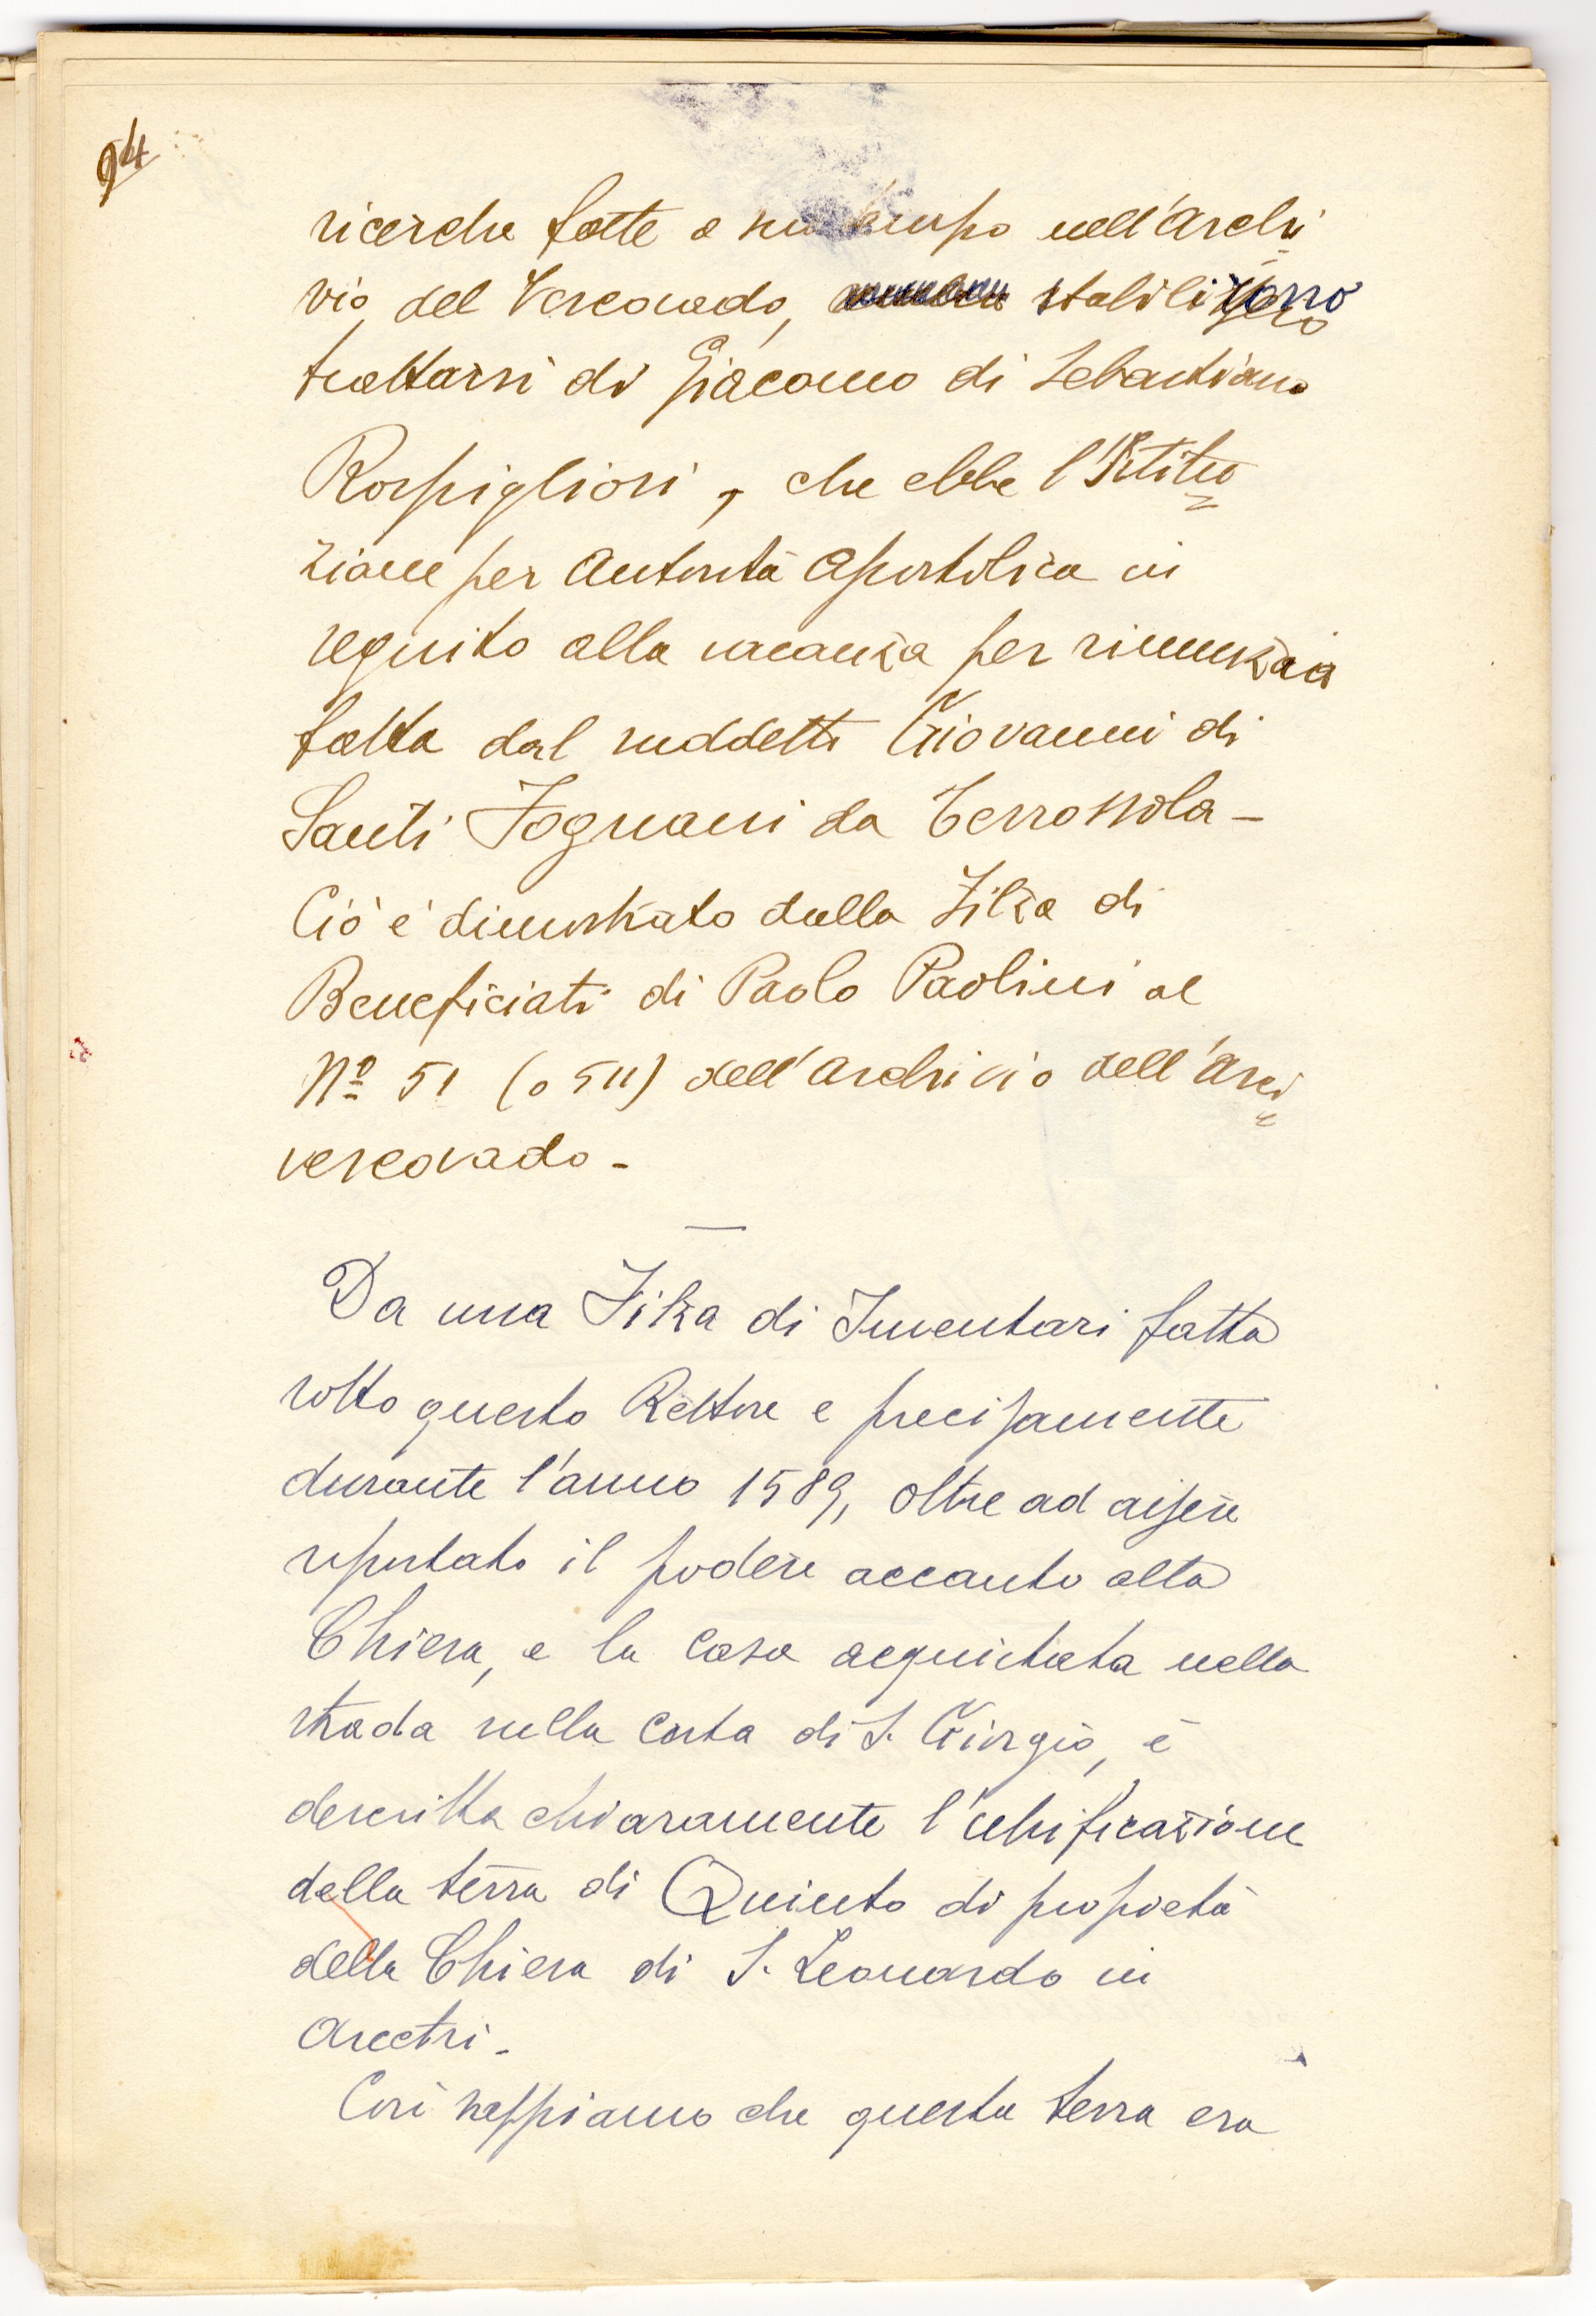 94
ricerche fatte a suo tempo nell'Archi
vio del Vescovado, stabilirono
trattarsi di Giacomo di Sebastiano
Rospigliosi, che ebbe l'Istitu=
zione per Autorità Apostolica in
seguito alla vacanza per rinunzia
fatta dal suddetto Giovanni di
Santi Fognani da Terrossola -
Ciò è dimostrato dalla Filza di
Beneficiati di Paolo Paolini al
Nº 51 (o 511) dell'Archivio dell'Arci=
vescovado -
Da una Filza di Inventari fatta
sotto questo Rettore e precisamente
durante l'anno 1589, oltre ad essere
riportato il podere accanto alla
Chiesa, e la casa acquistata nella
strada sulla Costa di S. Giorgio, è
descritta chiaramente l'ubificazione
della terra di Quinto di propietà
della Chiesa di S. Leonardo in
Arcetri -
Così sappiamo che questa terra era